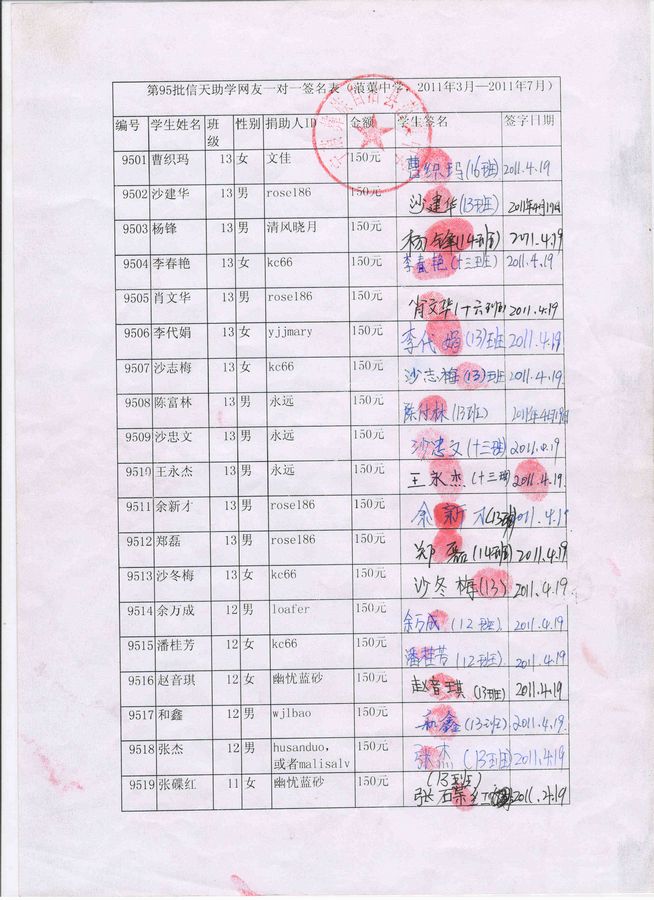 第95批信天助学网友一对一签名表（蒗蕖中学，2011年3月—2011年7月）
编号 学生姓名 班级 性别 捐助人ID 金额 学生签名 签字日期
9501 曹织玛 13 女 文佳 150元 曹织玛(16班) 2011.4.19
9502 沙建华 13 男 rose186 150元 沙建华(13班) 2011年4月19日
9503 杨锋 13 男 清风晓月 150元 杨锋(14班) 2011.4.19
9504 李春艳 13 女 kc66 150元 李春艳(十三班) 2011.4.19
9505 肖文华 13 男 rose186 150元 肖文华(十六班) 2011.4.19
9506 李代娟 13 女 yjjmary 150元 李代娟(13)班 2011.4.19
9507 沙志梅 13 女 kc66 150元 沙志梅(13)班 2011.4.19.
9508 陈富林 13 男 永远 150元 陈付林(13班) 2011年4月19日
9509 沙忠文 13 男 永远 150元 沙忠文(十三班) 2011.4.19
9510 王永杰 13 男 永远 150元 王永杰(十三班) 2011.4.19.
9511 余新才 13 男 rose186 150元 余新才(13班) 2011.4.19
9512 郑磊 13 男 rose186 150元 郑磊(14班) 2011.4.19
9513 沙冬梅 13 女 kc66 150元 沙冬梅(13) 2011.4.19
9514 余万成 12 男 loafer 150元 余万成(12班) 2011.4.19
9515 潘桂芳 12 女 kc66 150元 潘桂芳(12班) 2011.4.19
9516 赵音琪 12 女 幽忧蓝砂 150元 赵音琪(13班) 2011.4.19
9517 和鑫 12 男 wjlbao 150元 和鑫(13班) 2011.4.19
9518 张杰 12 男 husanduo，或者malisalv 150元 张杰(13班) 2011.4.19
9519 张碟红 11 女 幽忧蓝砂 150元 (13班) 2011.4.19